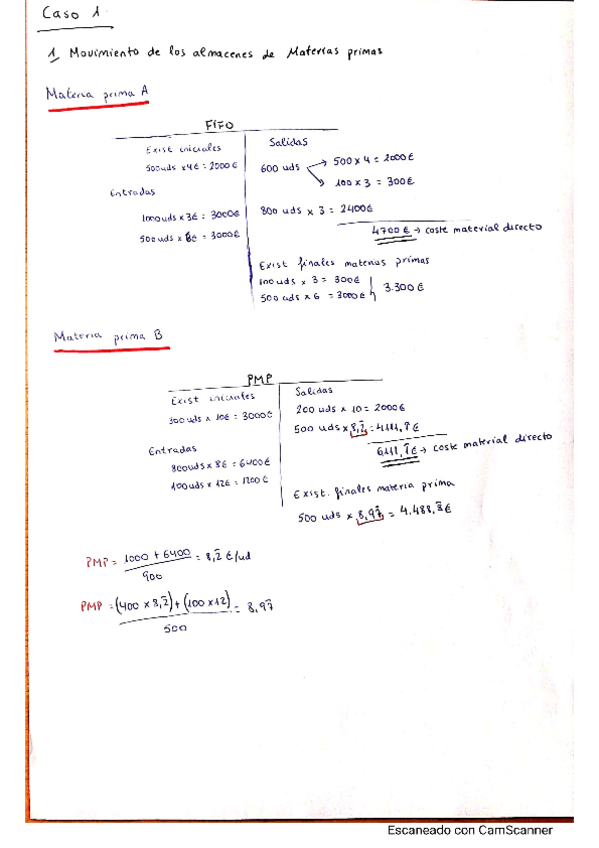 Caso 1
1, Movimiento de los almacenes de Materias primas
Materia prima A
FIFO
Exist iniciales
500uds x4€ = 2000€
Entradas
1000uds x 3€ = 3000€
500 uds x 6€ = 3000€
Salidas
600 uds
500 x 4 = 2000€
100 x 3 = 300€
800 uds x 3 = 2400€
4700€ → coste material directo
Exist finales materias primas
100 uds x 3 = 300€
500 uds x 6 = 3000€
3.300€
Materia prima B
PMP
Exist iniciales
300 uds x 10€ = 3000€
Entradas
800uds x 8€ = 6400€
100uds x 12€ = 1200€
Salidas
200 uds x 10 = 2000€
500 uds x 8,2̂ = 4111,1̂€
6111,1̂€ → coste material directo
Exist. finales materia prima
500 uds x 8,97̂ = 4.488,8̂€
PMP = 1000 + 6400 = 8,2̂ €/ud
900
PMP = (400 x 8,2̂) + (100 x 12) = 8,97̂
500
Escaneado con CamScanner